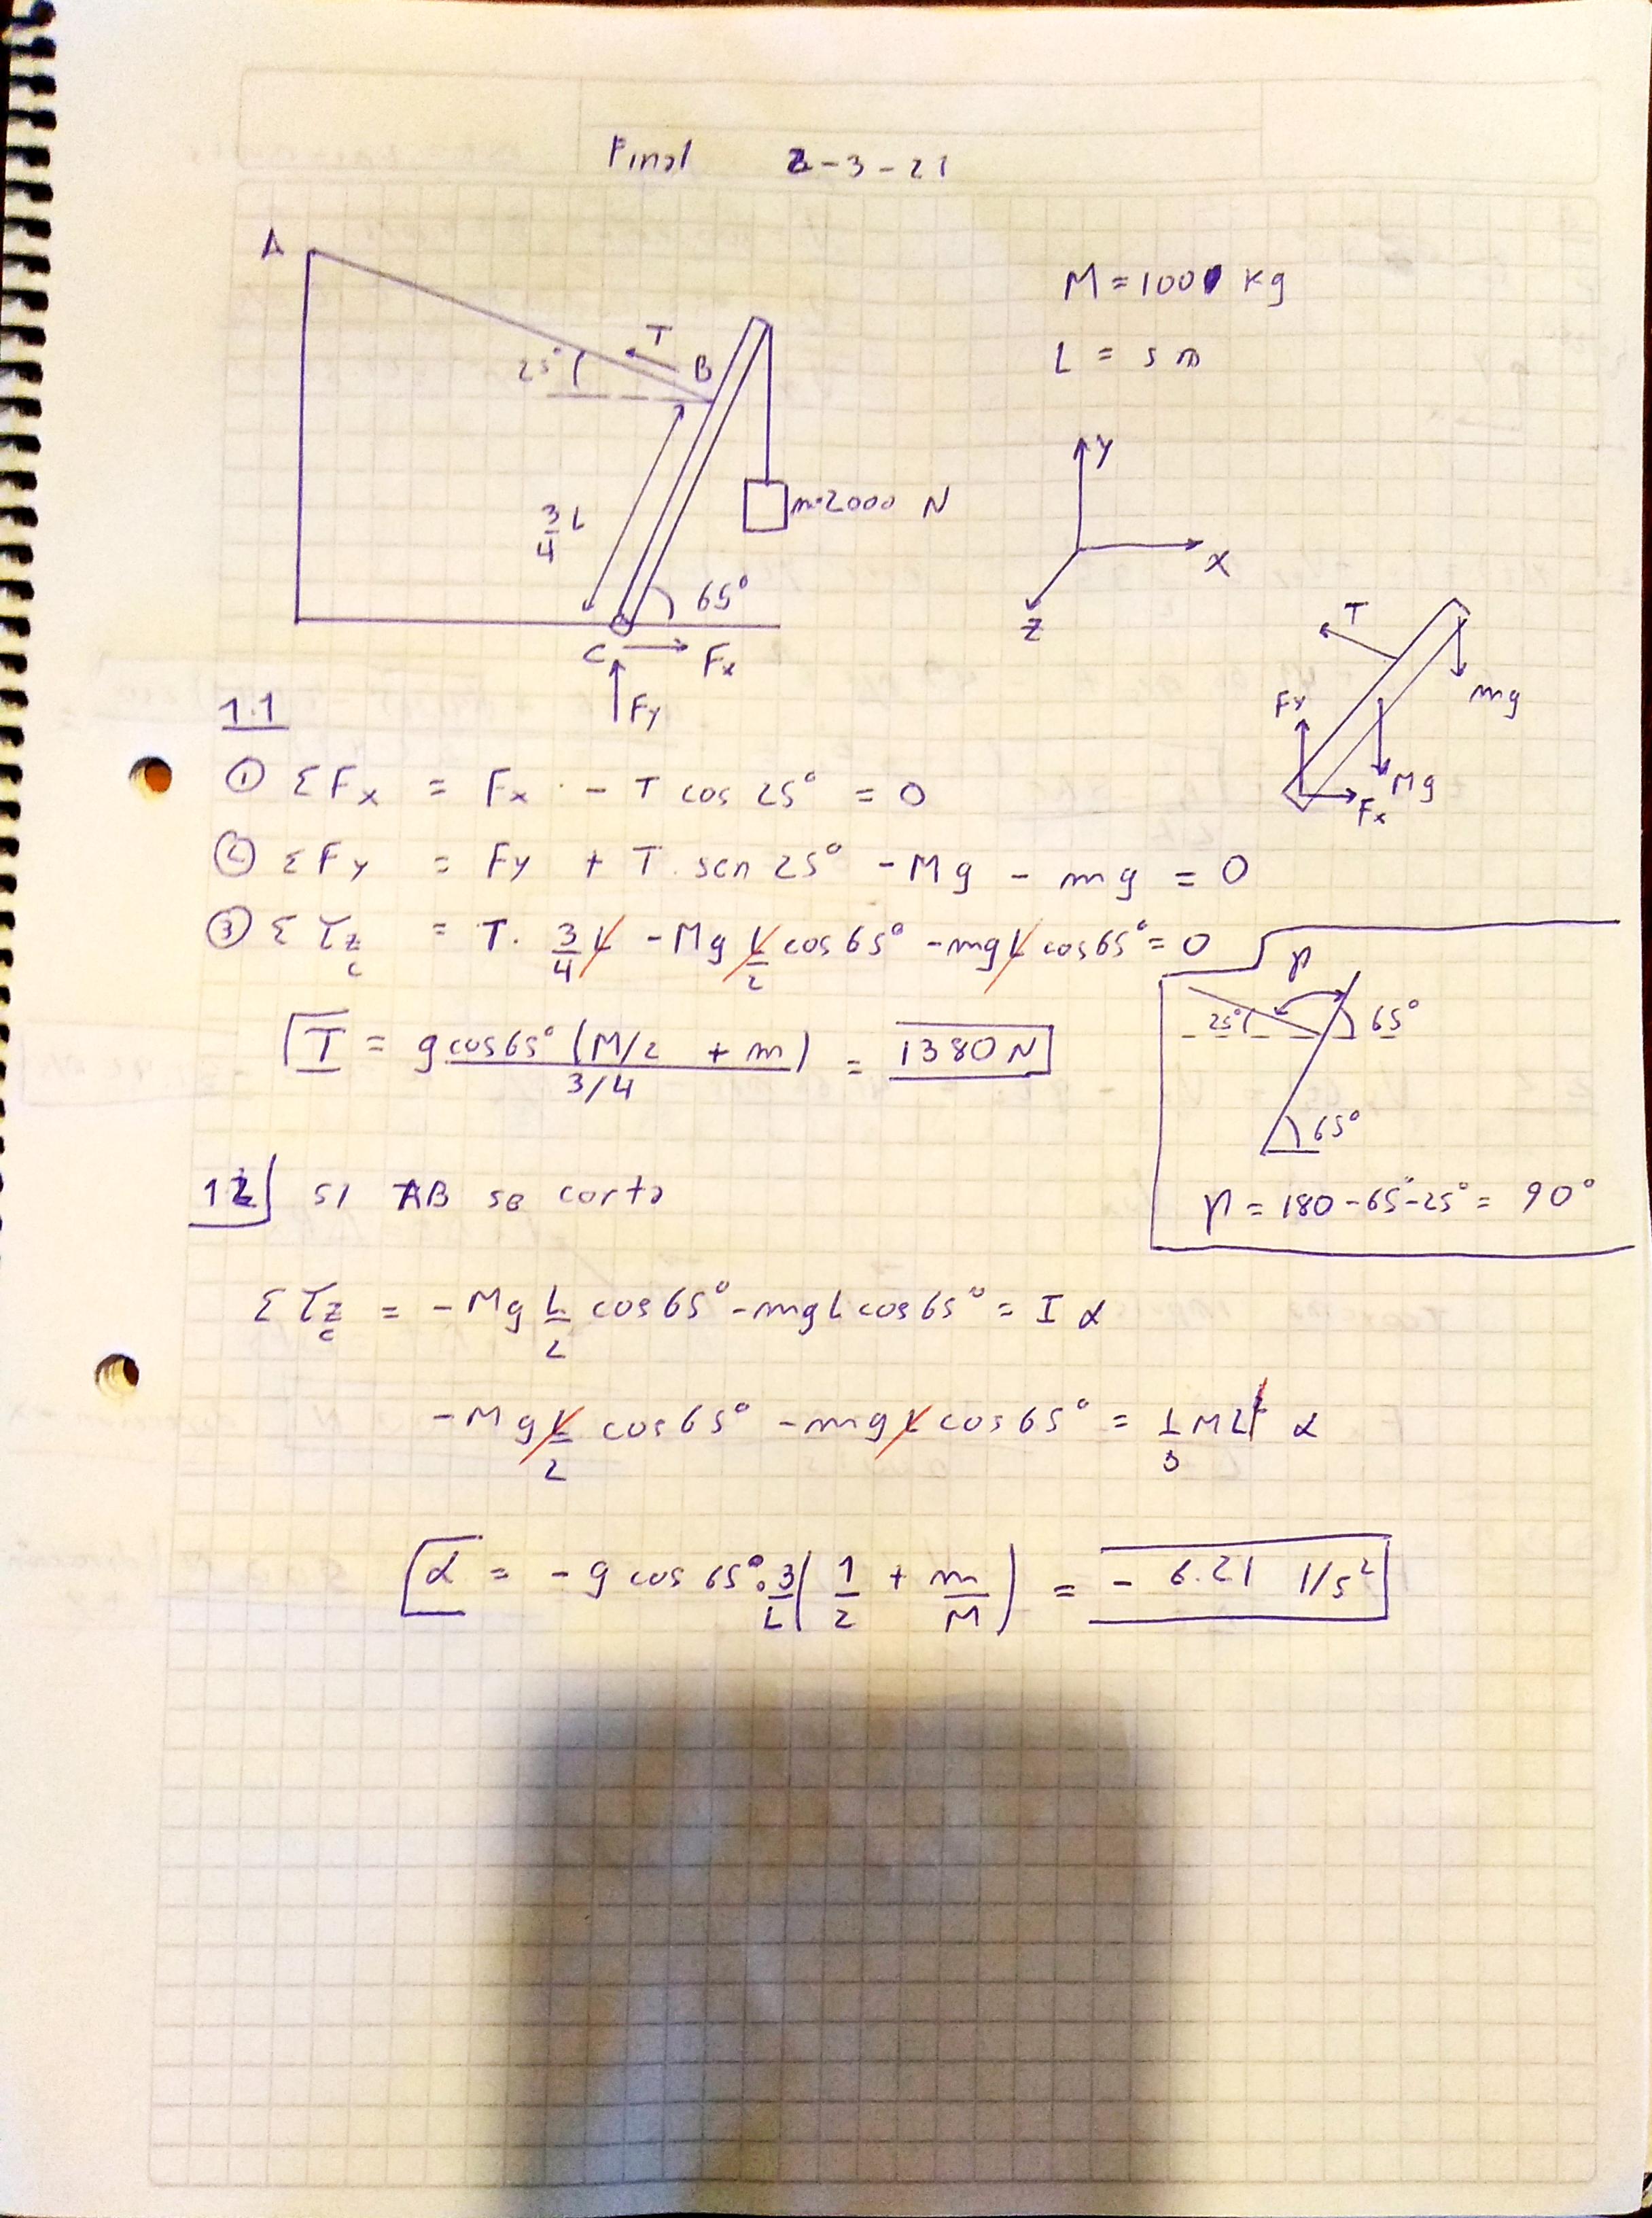 Final 2-3-21
A
M = 100 kg
L = 5 m
T
B
25°
3/4 L
m·2000 N
65°
C
Fx
Fy
Y
X
Z
T
mg
Fy
Mg
Fx
1.1
① ΣFx = Fx - T cos 25° = 0
② ΣFy = Fy + T. sen 25° - Mg - mg = 0
③ Στz c = T. 3/4 L - Mg L/2 cos 65° - mg L cos 65° = 0
T = g cos 65° (M/2 + m) / 3/4 = 1380 N
γ
25°
65°
65°
γ = 180 - 65° - 25° = 90°
12 si AB se corta
Στz c = - Mg L/2 cos 65° - mg L cos 65° = I α
- Mg L/2 cos 65° - mg L cos 65° = 1/3 M L² α
α = - g cos 65° · 3/L (1/2 + m/M) = - 6.21 1/s²